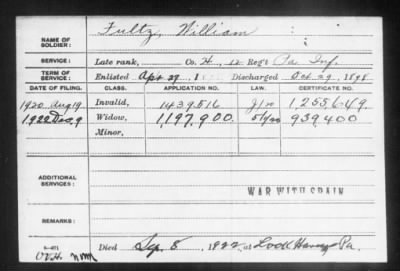 NAME OF SOLDIER: Fultz, William
SERVICE: Late rank, Co. H, 12 Reg't Pa Inf.
TERM OF SERVICE: Enlisted Apr 27, 1 Discharged Oct. 29, 1898
DATE OF FILING. CLASS. APPLICATION NO. LAW. CERTIFICATE NO.
1920 Aug 19 Invalid, 1439516 1,255,649.
1922 Dec, 9 Widow, 1,197,900. 939,400
Minor,
ADDITIONAL SERVICES:
WAR WITH SPAIN
REMARKS:
Died Sep. 8, 1922, at Lock Haven Pa.